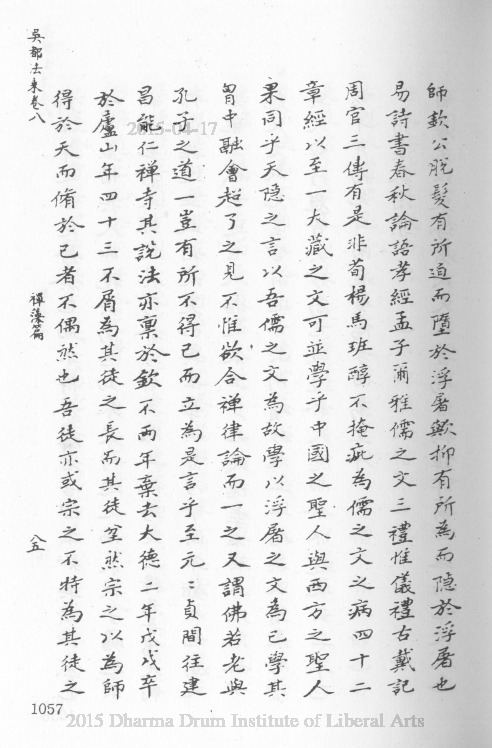 吳都法乘卷八
禪藻篇
八五
師欽公脫髮有所逌而墮於浮屠歟抑有所為而隱於浮屠也
易詩書春秋論語孝經孟子爾雅儒之文三禮惟儀禮古戴記
周官三傳有是非荀楊馬班醇不掩疵為儒之文之病四十二
章經以至一大藏之文可並學乎中國之聖人與西方之聖人
果同乎天隐之言以吾儒之文為故學以浮屠之文為已學其
胷中融會超了之見不惟欲合禪律論而一之又謂佛若老與
孔子之道一豈有所不得已而立為是言乎至元元貞間往建
昌能仁禪寺其說法亦稟於欽不兩年棄去大德二年戊戌卒
於廬山年四十三不屑為其徒之長而其徒翕然宗之以為師
得於天而脩於己者不偶然也吾徒亦或宗之不特為其徒之
1057
2015-04-17
2015 Dharma Drum Institute of Liberal Arts